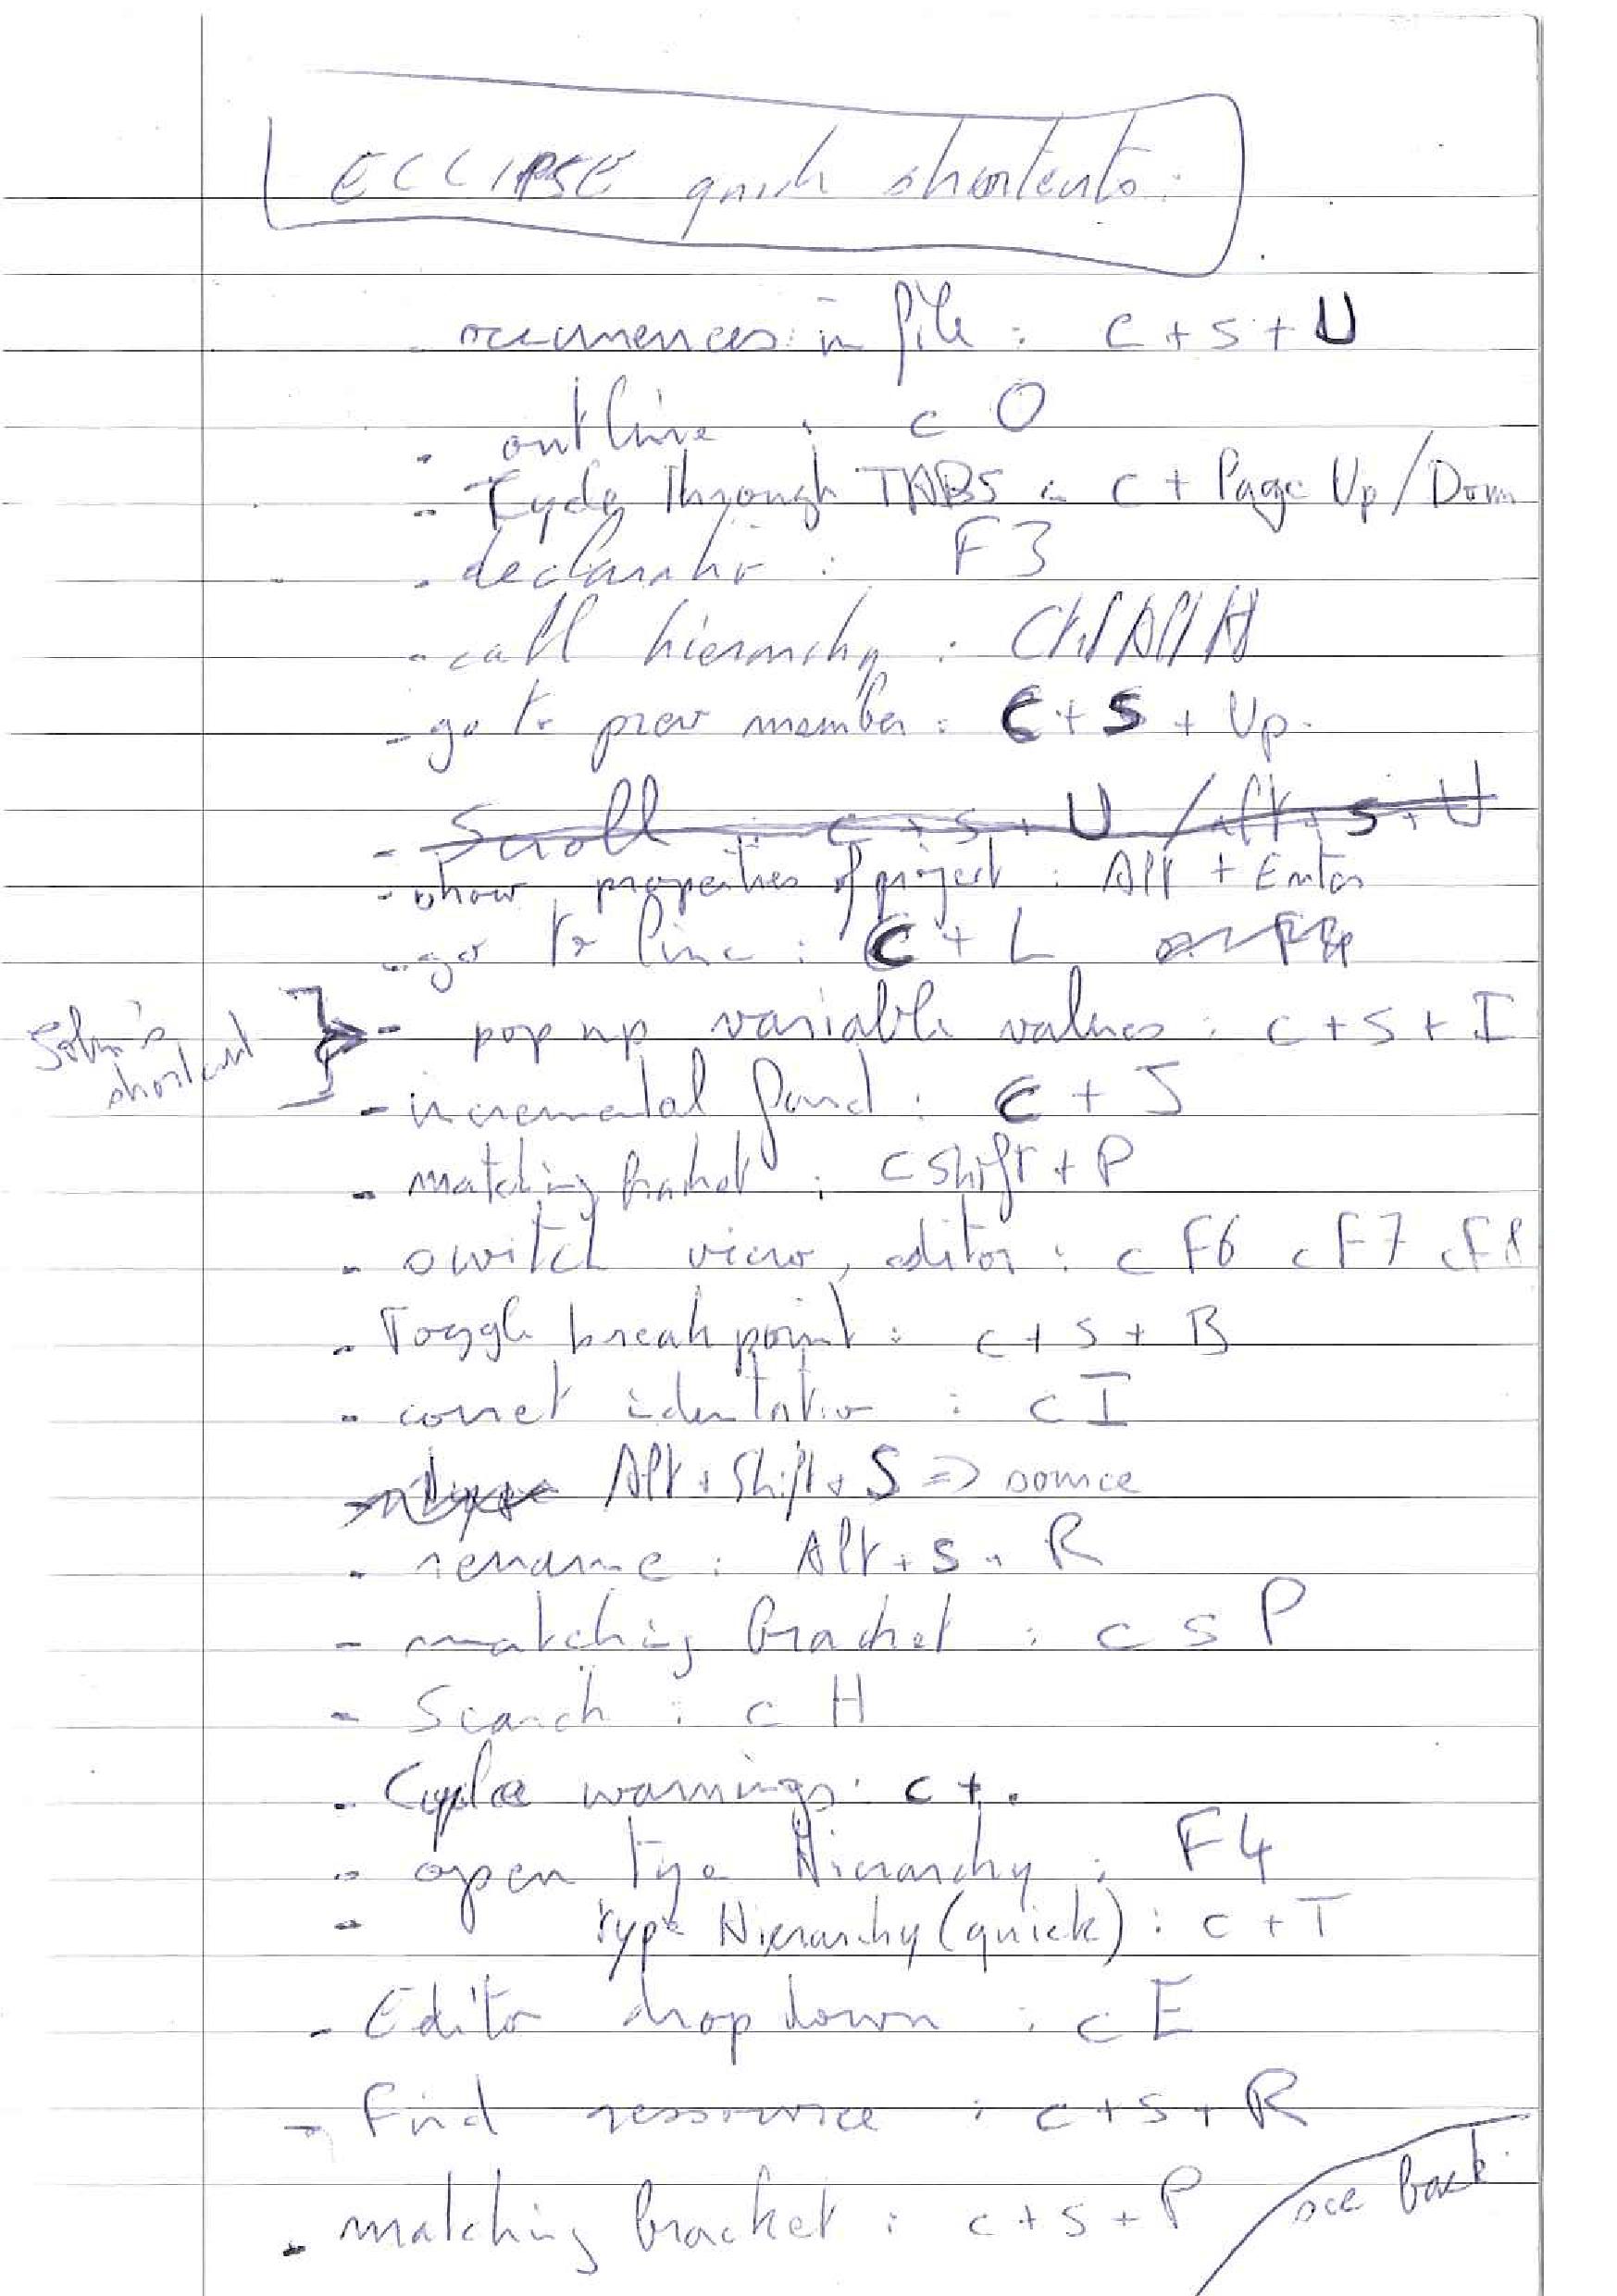 ECLIPSE quick shortcuts:
- occurrences in file : C + S + U
- outline : C O
- Cycle Through TABS : C + Page Up/Down
- declaration : F3
- call hierarchy : Ctrl Alt H
- go to prev member : C + S + Up.
- Scroll : C + S + U / alt + S + U
- show properties of project : Alt + Enter
- go to line : C + L or F4
John's shortcut
- pop up variable values : C + S + I
- incremental find : C + J
- matching bracket : C Shift + P
- switch view, editor : C F6 C F7 C F8
- Toggle breakpoint : C + S + B
- correct identation : C I
Alt + Shift + S => source
- rename : Alt + S + R
- matching bracket : C S P
- Search : C H
- Cycle warnings : C + .
- open Type Hierarchy : F4
- Type Hierarchy (quick) : C + T
- Editor drop down : C E
- Find ressource : C + S + R
- matching bracket : C + S + P
see back